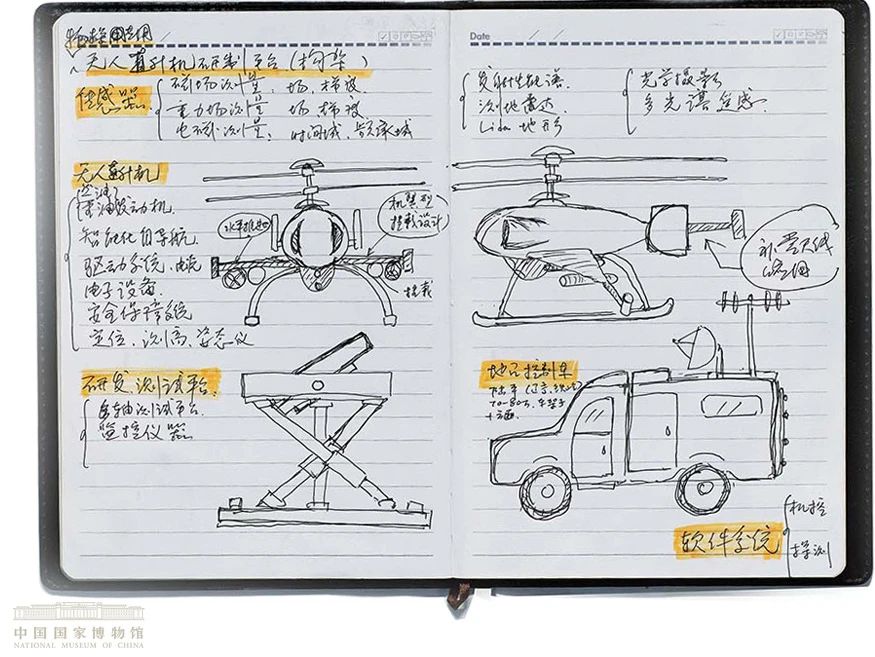 无人直升机研制平台（构架）
传感器
磁场测量：场，梯度
重力场测量 场，梯度
电磁测量：时间域，频率域
无人直升机
重油发动机
智能化自导航
驱动系统、电流
电子设备
安全保障系统
定位、测高、姿态仪
机翼型
挂载设计
挂载
研发、测试平台
多轴测试平台
监控仪器
Date
放射性能谱
测地雷达
Lidar 地形
光学摄影
多光谱
地面控制车
70-80万
软件系统
机控
中国国家博物馆
NATIONAL MUSEUM OF CHINA